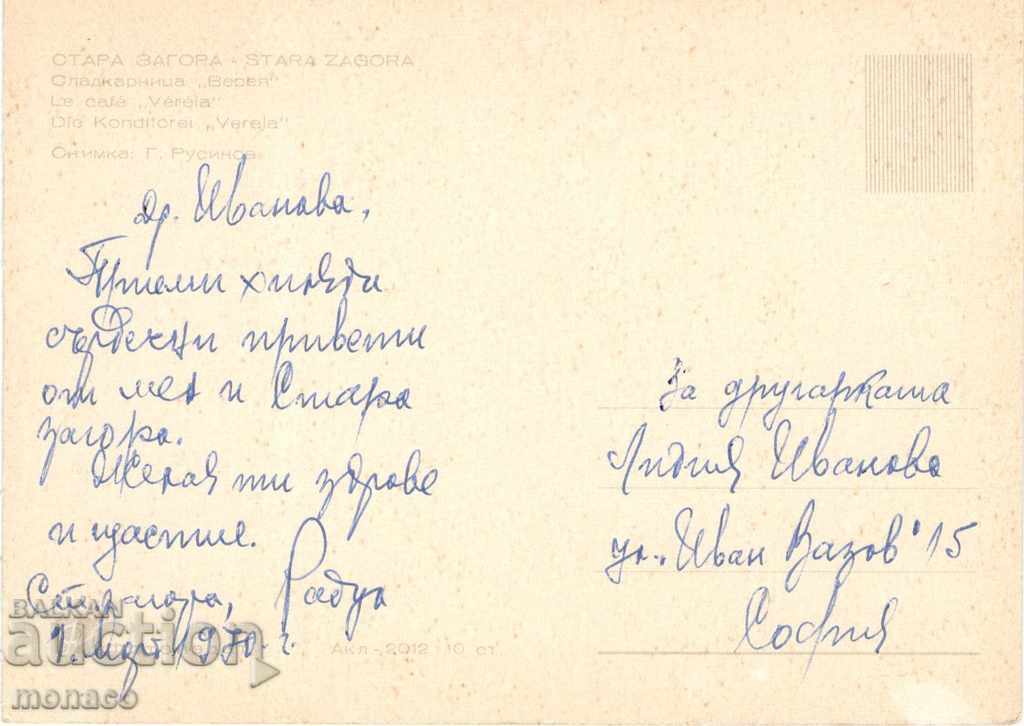 СТАРА ЗАГОРА - STARA ZAGORA
Сладкарница „Верея"
Le café „Véréia"
Die Konditorei „Vereja"
Снимка: Г. Русинов
др. Иванова,
Приеми хиляди
сърдечни привети
от мен и Стара
загора.
Желая ти здраве
и щастие.
Ст. Загора,
1. 1970 г.
За другарката
Лидия Иванова
ул. „Иван Вазов" 15
София
Акл-2012 10 ст
BALKAN
auction
monaco